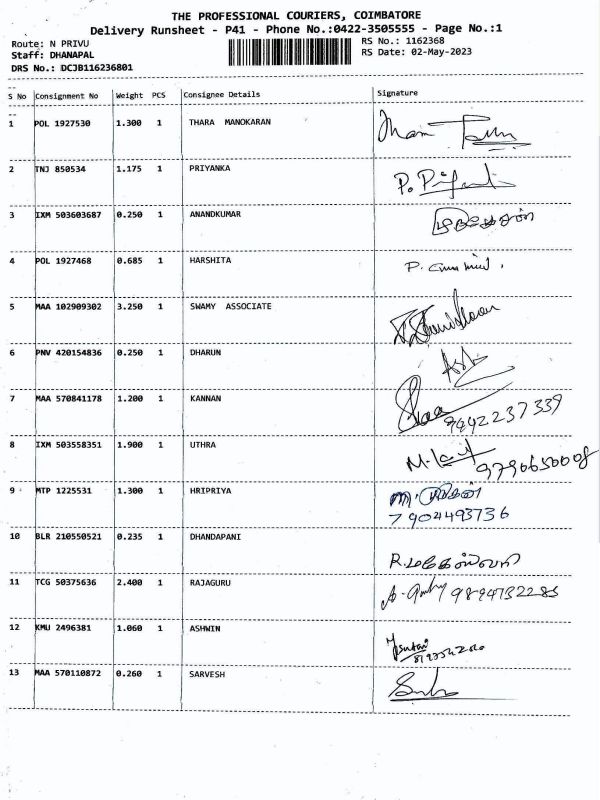 THE PROFESSIONAL COURIERS, COIMBATORE
Delivery Runsheet - P41 - Phone No.:0422-3505555 - Page No.:1
Route: N PRIVU RS No.: 1162368
Staff: DHANAPAL RS Date: 02-May-2023
DRS No.: DCJB116236801
S No Consignment No Weight PCS Consignee Details Signature
1 POL 1927530 1.300 1 THARA MANOKARAN
2 TNJ 850534 1.175 1 PRIYANKA P.
3 IXM 503603687 0.250 1 ANANDKUMAR
4 POL 1927468 0.685 1 HARSHITA P.
5 MAA 102909302 3.250 1 SWAMY ASSOCIATE
6 PNV 420154836 0.250 1 DHARUN
7 MAA 570841178 1.200 1 KANNAN 9442237339
8 IXM 503558351 1.900 1 UTHRA 9790650008
9 MTP 1225531 1.300 1 HRIPRIYA
7904493736
10 BLR 210550521 0.235 1 DHANDAPANI R.மகேஸ்வரி
11 TCG 50375636 2.400 1 RAJAGURU 9894732285
12 KMU 2496381 1.060 1 ASHWIN
13 MAA 570110872 0.260 1 SARVESH